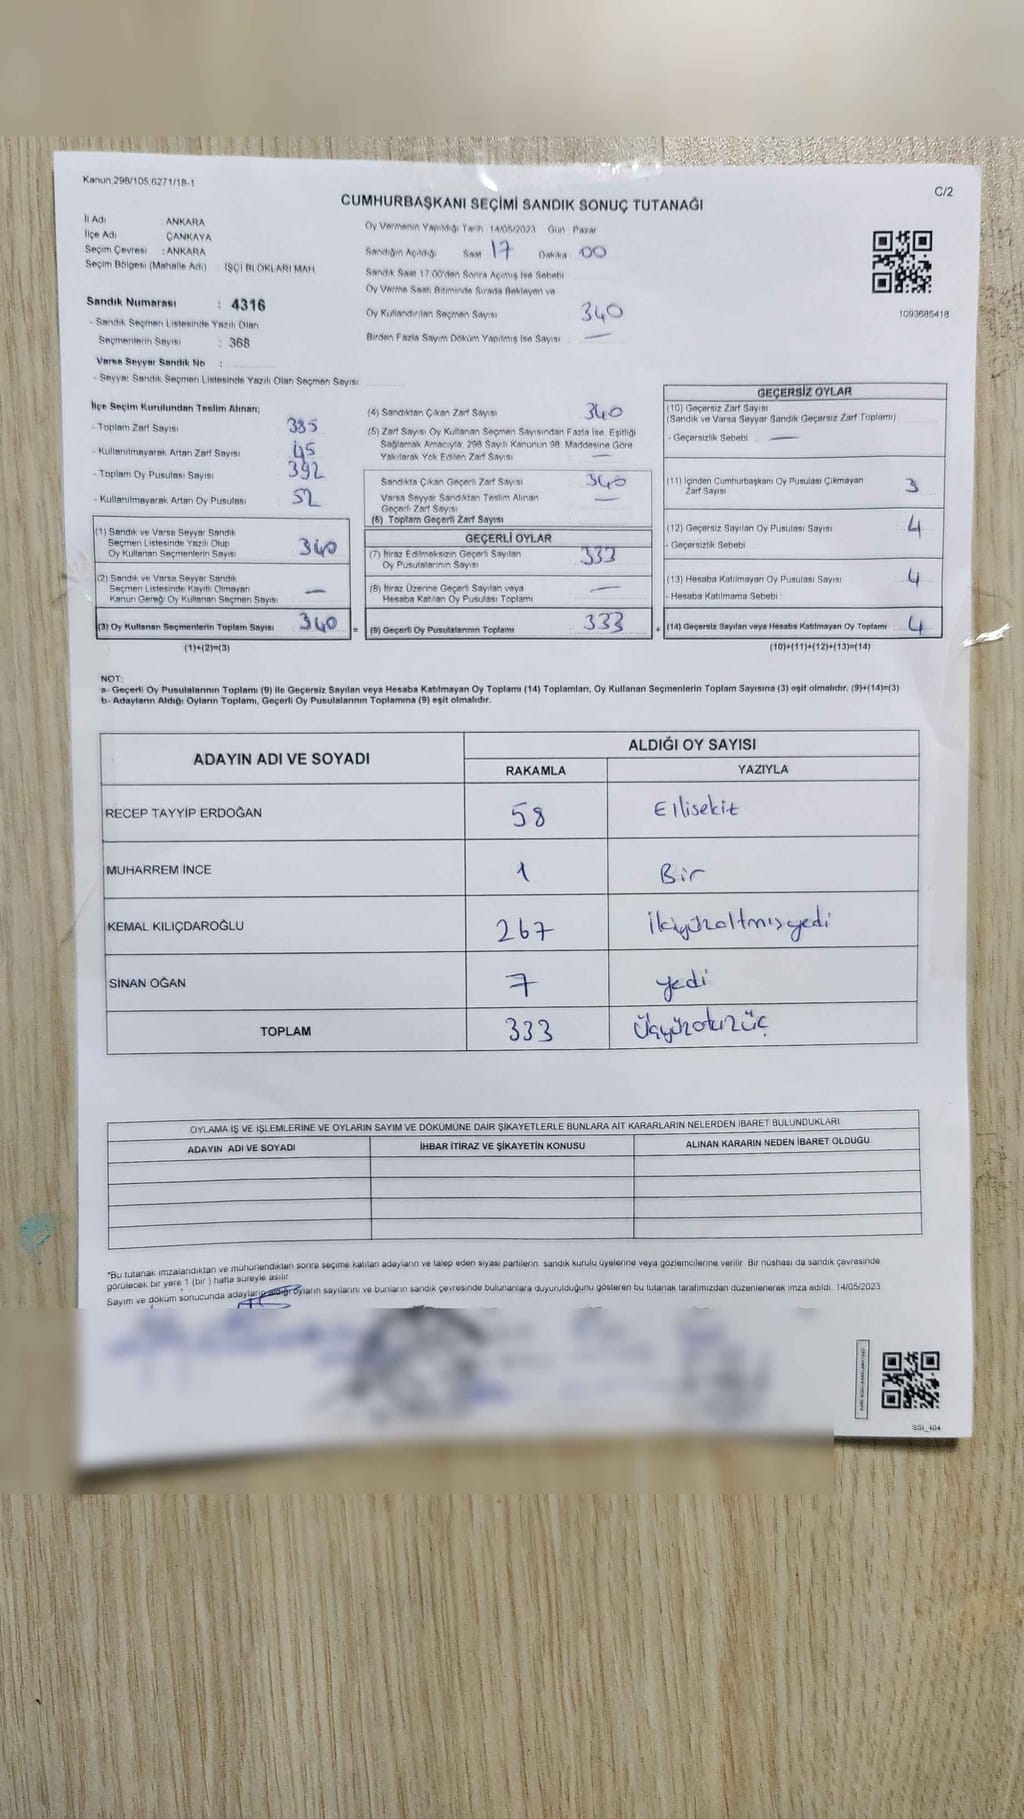 Kanun:298/105,6271/18-1
C/2
CUMHURBAŞKANI SEÇİMİ SANDIK SONUÇ TUTANAĞI
İl Adı : ANKARA
İlçe Adı : ÇANKAYA
Seçim Çevresi : ANKARA
Seçim Bölgesi (Mahalle Adı) : İŞÇİ BLOKLARI MAH.
Sandık Numarası : 4316
- Sandık Seçmen Listesinde Yazılı Olan
Seçmenlerin Sayısı : 368
Varsa Seyyar Sandık No :
- Seyyar Sandık Seçmen Listesinde Yazılı Olan Seçmen Sayısı:
Oy Vermenin Yapıldığı Tarih 14/05/2023 Gün : Pazar
Sandığın Açıldığı Saat 17 Dakika 00
Sandık Saat 17.00'den Sonra Açılmış İse Sebebi
Oy Verme Saati Bitiminde Sırada Bekleyen ve
Oy Kullandırılan Seçmen Sayısı 340
Birden Fazla Sayım Döküm Yapılmış İse Sayısı —
1093685418
İlçe Seçim Kurulundan Teslim Alınan;
- Toplam Zarf Sayısı 385
- Kullanılmayarak Artan Zarf Sayısı 45
- Toplam Oy Pusulası Sayısı 392
- Kullanılmayarak Artan Oy Pusulası 52
(1) Sandık ve Varsa Seyyar Sandık
Seçmen Listesinde Yazılı Olup
Oy Kullanan Seçmenlerin Sayısı 340
(2) Sandık ve Varsa Seyyar Sandık
Seçmen Listesinde Kayıtlı Olmayan
Kanun Gereği Oy Kullanan Seçmen Sayısı —
(3) Oy Kullanan Seçmenlerin Toplam Sayısı 340 =
(1)+(2)=(3)
(4) Sandıktan Çıkan Zarf Sayısı 340
(5) Zarf Sayısı Oy Kullanan Seçmen Sayısından Fazla İse, Eşitliği
Sağlamak Amacıyla, 298 Sayılı Kanunun 98. Maddesine Göre
Yakılarak Yok Edilen Zarf Sayısı —
Sandıkta Çıkan Geçerli Zarf Sayısı 340
Varsa Seyyar Sandıktan Teslim Alınan
Geçerli Zarf Sayısı —
(6) Toplam Geçerli Zarf Sayısı
GEÇERLİ OYLAR
(7) İtiraz Edilmeksizin Geçerli Sayılan
Oy Pusulalarının Sayısı 333
(8) İtiraz Üzerine Geçerli Sayılan veya
Hesaba Katılan Oy Pusulası Toplamı —
(9) Geçerli Oy Pusulalarının Toplamı 333 +
GEÇERSİZ OYLAR
(10) Geçersiz Zarf Sayısı
(Sandık ve Varsa Seyyar Sandık Geçersiz Zarf Toplamı)
- Geçersizlik Sebebi : —
(11) İçinden Cumhurbaşkanı Oy Pusulası Çıkmayan
Zarf Sayısı 3
(12) Geçersiz Sayılan Oy Pusulası Sayısı 4
- Geçersizlik Sebebi :
(13) Hesaba Katılmayan Oy Pusulası Sayısı 4
- Hesaba Katılmama Sebebi :
(14) Geçersiz Sayılan veya Hesaba Katılmayan Oy Toplamı 4
(10)+(11)+(12)+(13)=(14)
NOT:
a- Geçerli Oy Pusulalarının Toplamı (9) ile Geçersiz Sayılan veya Hesaba Katılmayan Oy Toplamı (14) Toplamları, Oy Kullanan Seçmenlerin Toplam Sayısına (3) eşit olmalıdır. (9)+(14)=(3)
b- Adayların Aldığı Oyların Toplamı, Geçerli Oy Pusulalarının Toplamına (9) eşit olmalıdır.
ADAYIN ADI VE SOYADI
ALDIĞI OY SAYISI
RAKAMLA YAZIYLA
RECEP TAYYİP ERDOĞAN 58 Ellisekiz
MUHARREM İNCE 1 Bir
KEMAL KILIÇDAROĞLU 267 İkiyüzaltmışyedi
SİNAN OĞAN 7 yedi
TOPLAM 333 Üçyüzotuzüç
OYLAMA İŞ VE İŞLEMLERİNE VE OYLARIN SAYIM VE DÖKÜMÜNE DAİR ŞİKAYETLERLE BUNLARA AİT KARARLARIN NELERDEN İBARET BULUNDUKLARI
ADAYIN ADI VE SOYADI İHBAR İTİRAZ VE ŞİKAYETİN KONUSU ALINAN KARARIN NEDEN İBARET OLDUĞU
*Bu tutanak imzalandıktan ve mühürlendikten sonra seçime katılan adayların ve talep eden siyasi partilerin sandık kurulu üyelerine veya gözlemcilerine verilir. Bir nüshası da sandık çevresinde
görülecek bir yere 1 (bir ) hafta süreyle asılır.
Sayım ve döküm sonucunda adayların aldığı oyların sayılarını ve bunların sandık çevresinde bulunanlara duyurulduğunu gösteren bu tutanak tarafımızdan düzenlenerek imza edildi. 14/05/2023
SSI_404